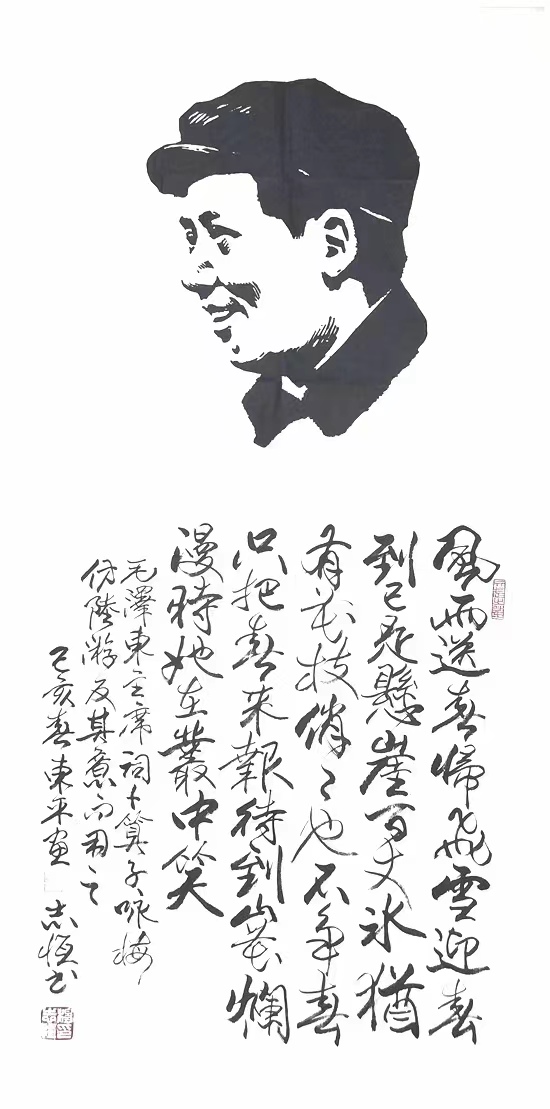 風雨送春歸飛雪迎春
到已是懸崖百丈冰猶
有花枝俏〻也不爭春
只把春來報待到山花爛
漫時她在叢中笑
毛澤東主席詞卜算子咏梅
仿陸游反其意而用之
己亥春東平畫 志恒书